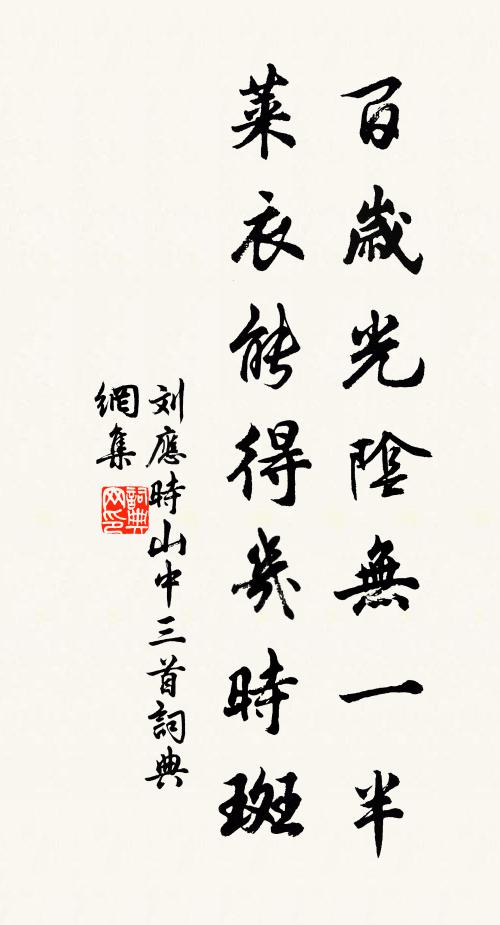 百歲光陰無一半
萊衣能得幾時斑
刘應時山中三首詞典
網集
詞典网印